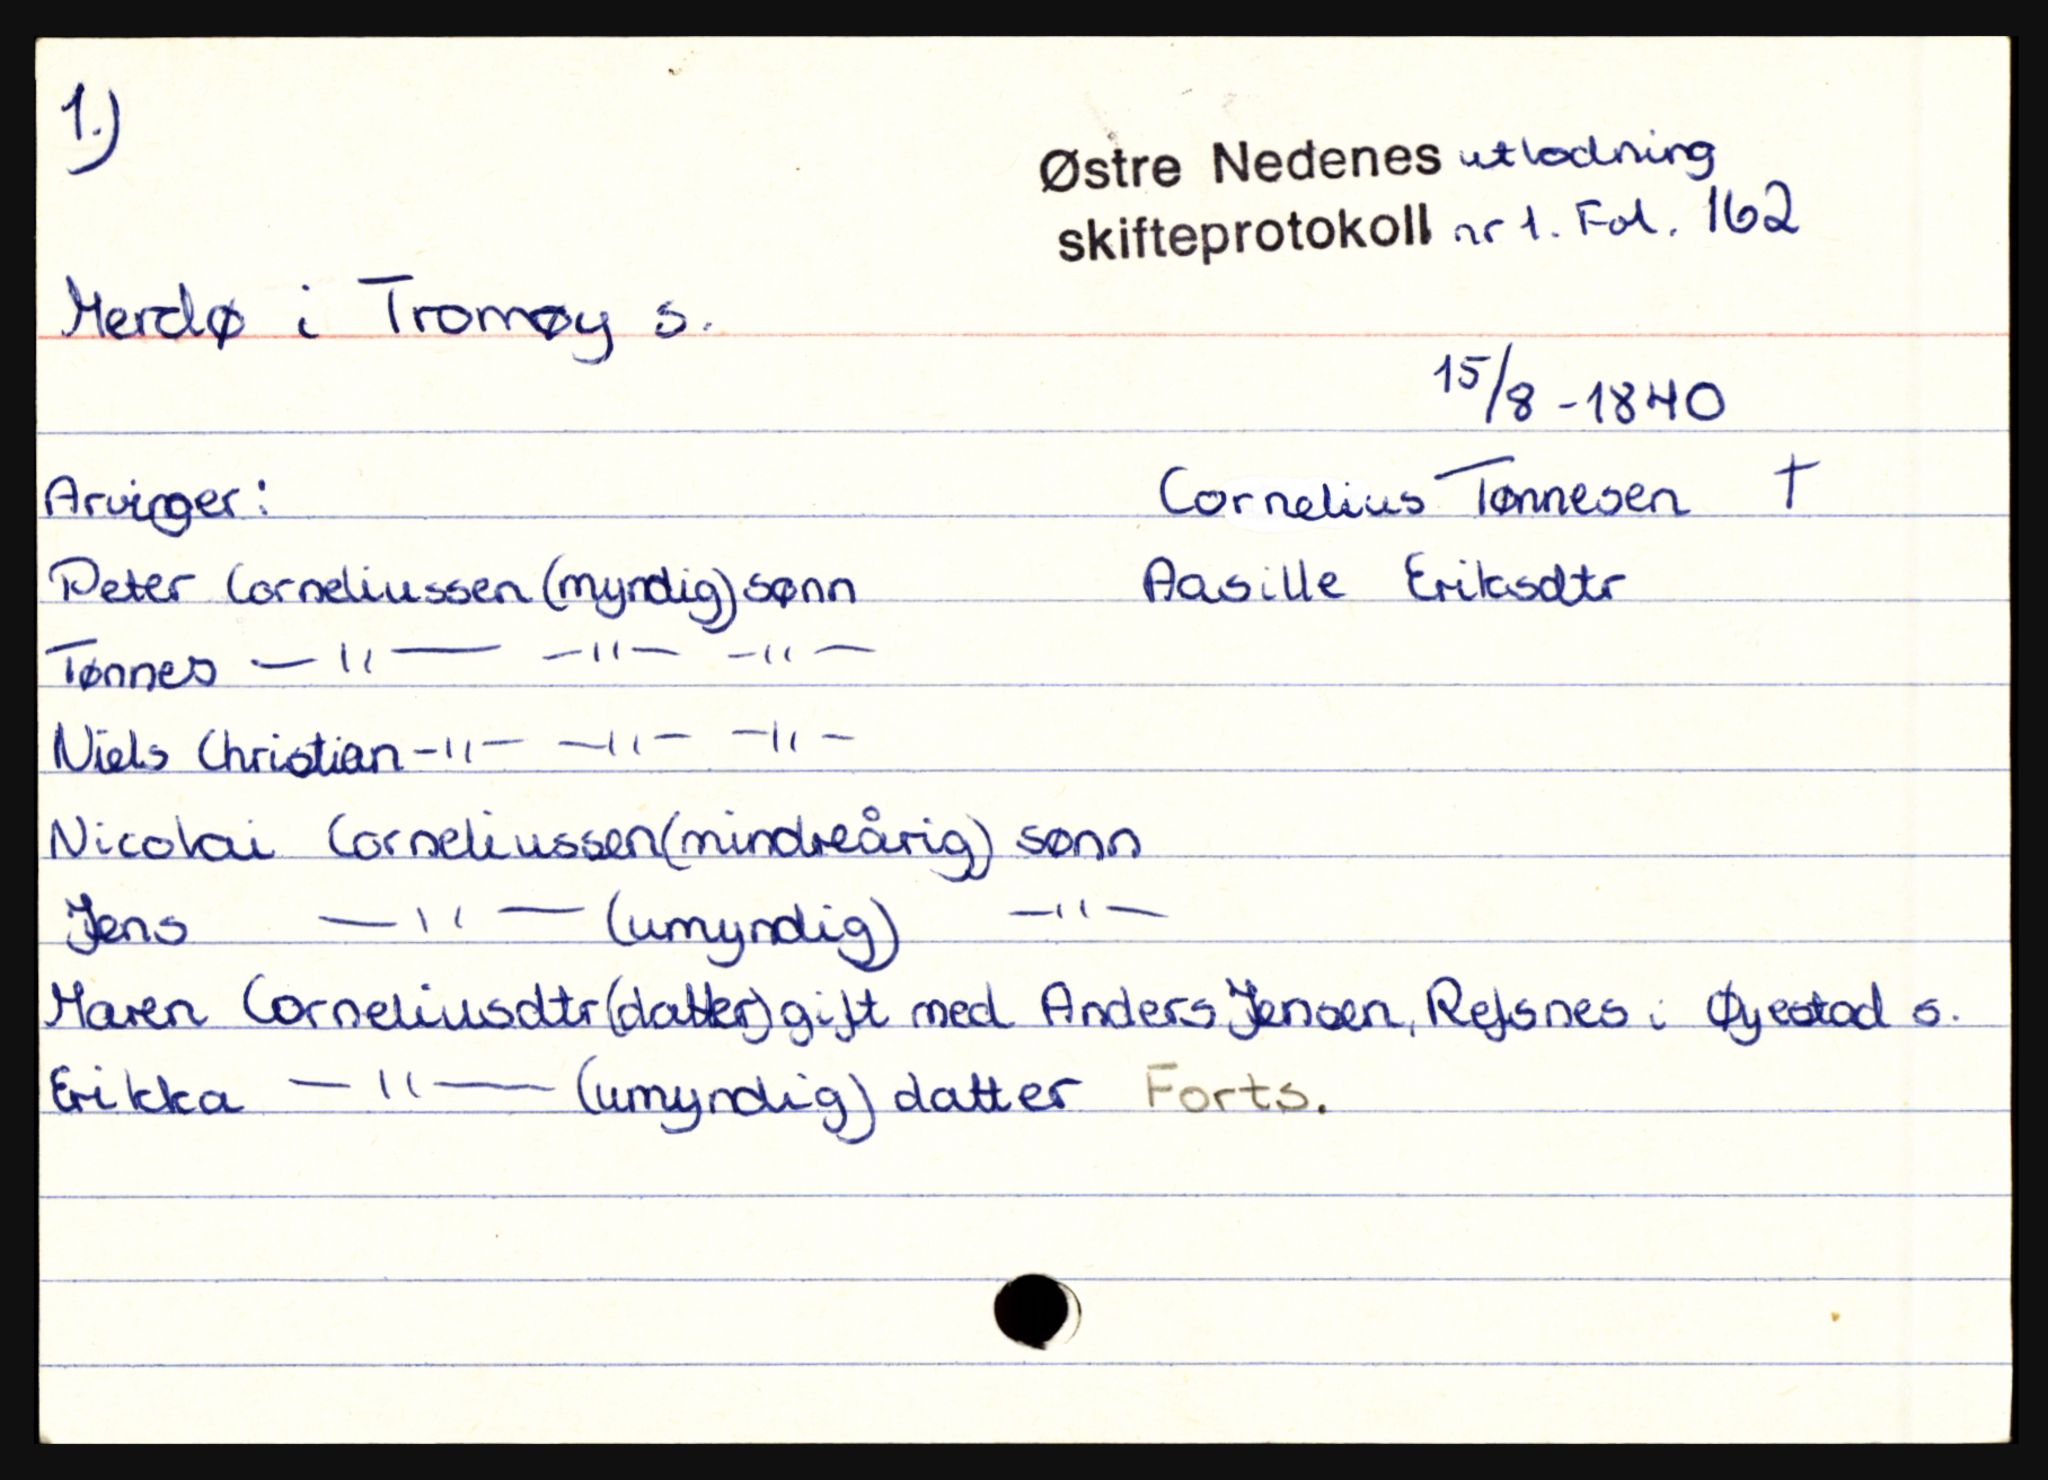 1.)
Østre Nedenes utlodning
skifteprotokoll nr 1. Fol. 162
Merdø i Tromøy s.
15/8 - 1840
Arvinger: Cornelius Tønnesen †
Peter Corneliussen (myndig) sønn Aasille Eriksdtr
Tønnes —"— —"— —"—
Niels Christian —"— —"— —"—
Nicolai Corneliussen (mindreårig) sønn
Jens —"— (umyndig) —"—
Maren Corneliusdtr (datter) gift med Anders Jensen, Refsnes i Øyestad s.
Erikka —"— (umyndig) datter Forts.